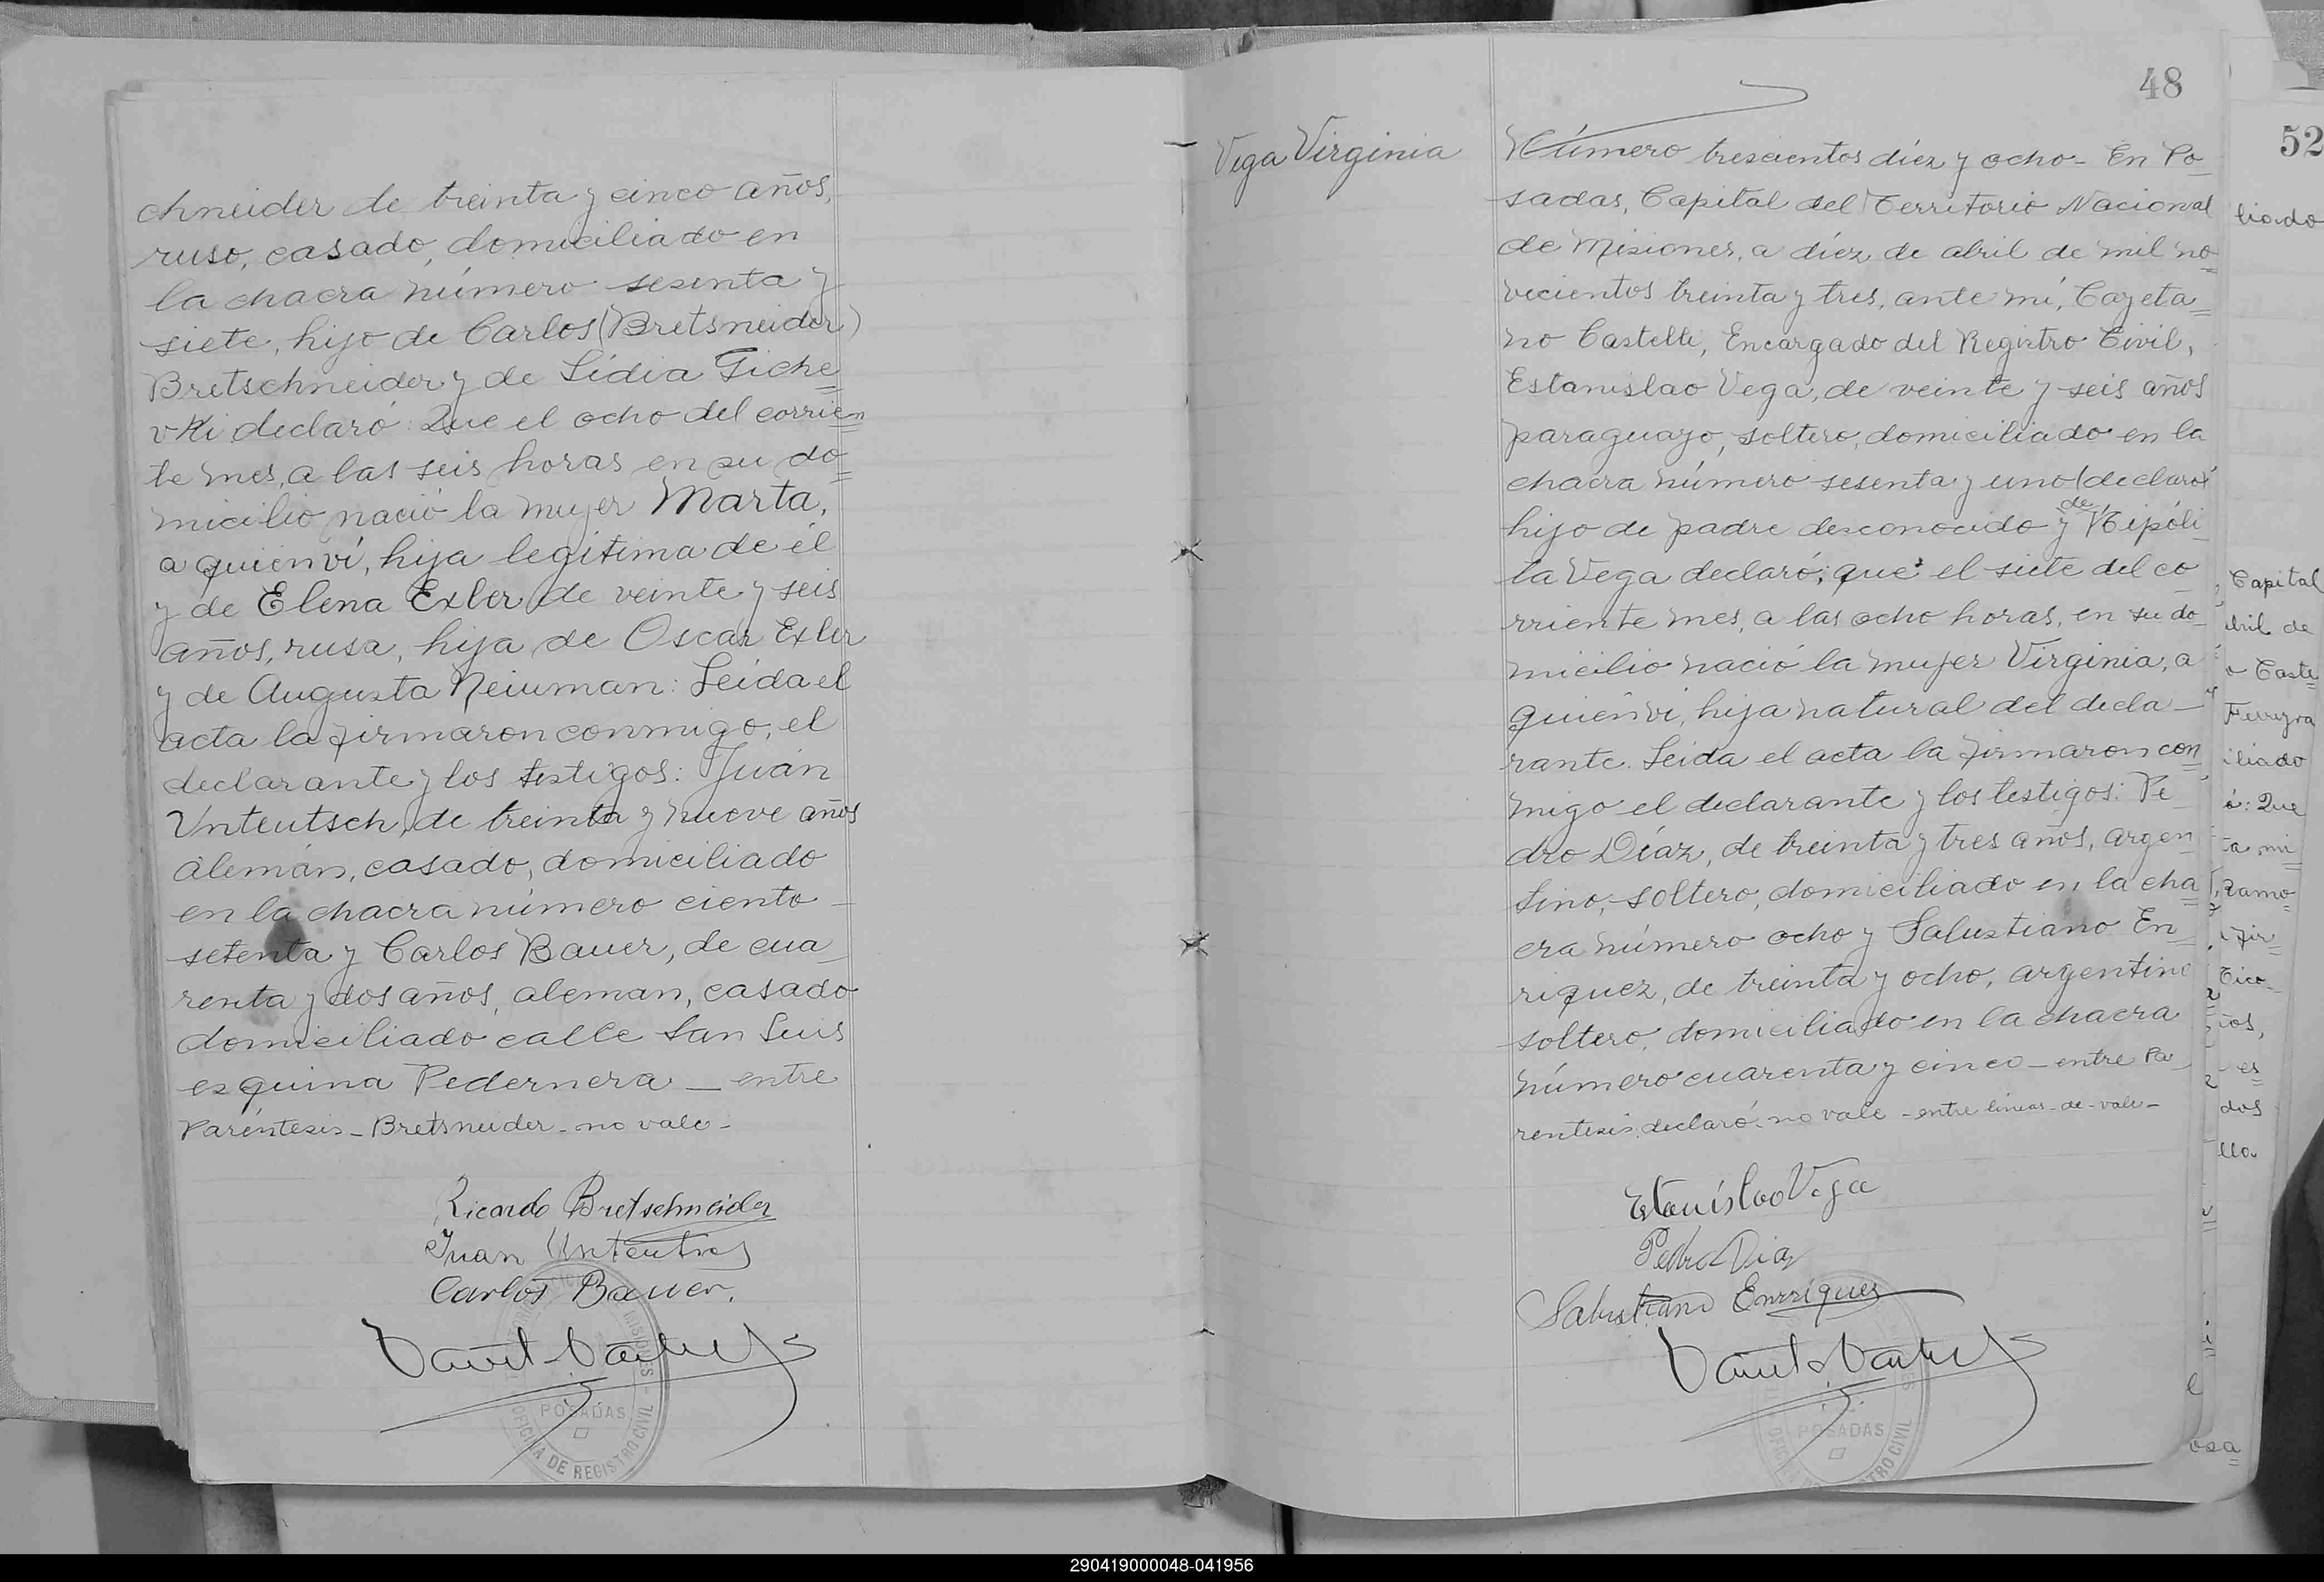 chneider de treinta y cinco años,
ruso, casado, domiciliado en
la chacra número sesenta y
siete, hijo de Carlos (Bretsneider)
Bretschneider y de Lidia Giche=
vki declaró: Que el ocho del corrien=
te mes, a las seis horas en su do=
micilio nació la mujer Marta,
a quien ví, hija legítima de él
y de Elena Exler de veinte y seis
años, rusa, hija de Oscar Exler
y de Augusta Neiuman: Leida el
acta la firmaron conmigo, el
declarante y los testigos: Juan
Unteutsch, de treinta y nueve años
alemán, casado, domiciliado
en la chacra número ciento
setenta y Carlos Bauer, de cua_
renta y dos años, aleman, casado
domiciliado calle San Luis
esquina Pedernera _ entre
Paréntesis - Bretsneider - no vale -
Ricardo Bretschneider
Juan
Carlos Bauer.
POSADAS
OFICINA DE REGISTRO CIVIL
MISIONES
48
Vega Virginia
Número trescientos diez y ocho - En Po_
sadas, Capital del Territorio Nacional
de Misiones, a diez de abril de mil no=
vecientos treinta y tres, ante mí, Cayeta=
no Castelli, Encargado del Registro Civil,
Estanislao Vega, de veinte y seis años
paraguayo, soltero, domiciliado en la
chacra número sesenta y uno (declaró)
hijo de padre desconocido y de Hipóli_
ta Vega declaró; que el siete del co_
rriente mes, a las ocho horas, en su do_
micilio nació la mujer Virginia, a
quien ví, hija natural del decla_
rante. Leida el acta la firmaron con=
migo el declarante y los testigos: Pe_
dro Díaz, de treinta y tres años, argen_
tino, soltero, domiciliado en la cha=
cra número ocho y Salustiano En_
riquez, de treinta y ocho, argentino
soltero, domiciliado en la chacra
número cuarenta y cinco - entre Pa_
rentesis, declaró - no vale - entre líneas - de - vale -
Estanislao Vega
Pedro Diaz
Salustiano Enrriquez
POSADAS
52
liado
Capital
abril de
Caste=
Ferreyra
iliado
ó: Que
Ramo=
fir=
ños,
es=
dos
lla.
osa=
290419000048-041956